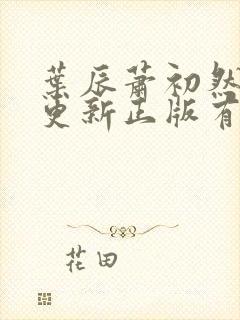 葉辰蕭初然
更新正版有
花田